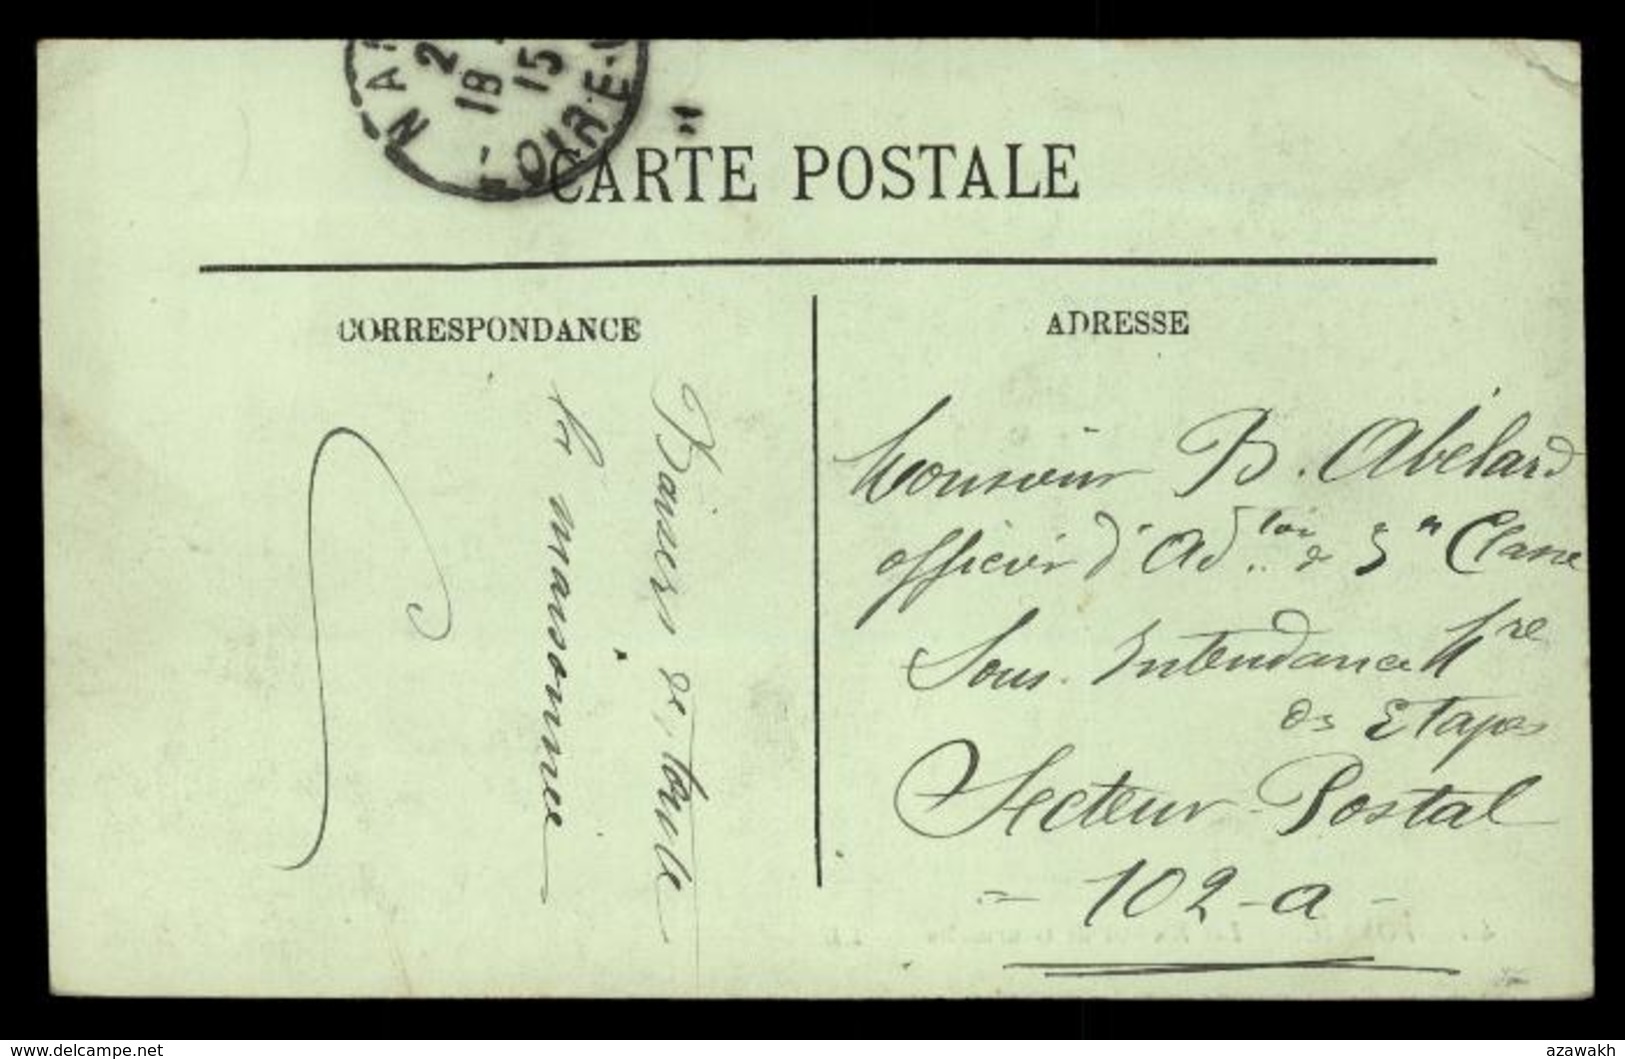 NA
2
18 15
LOIRE
CARTE POSTALE
CORRESPONDANCE
ADRESSE
Baisers de toute
la maisonnée
Monsieur B. Abélard
officier d'Ad.ton de 3e Classe
Sous-Intendance Mre
des Etapes
Secteur Postal
= 102-a -
www.delcampe.net
azawakh